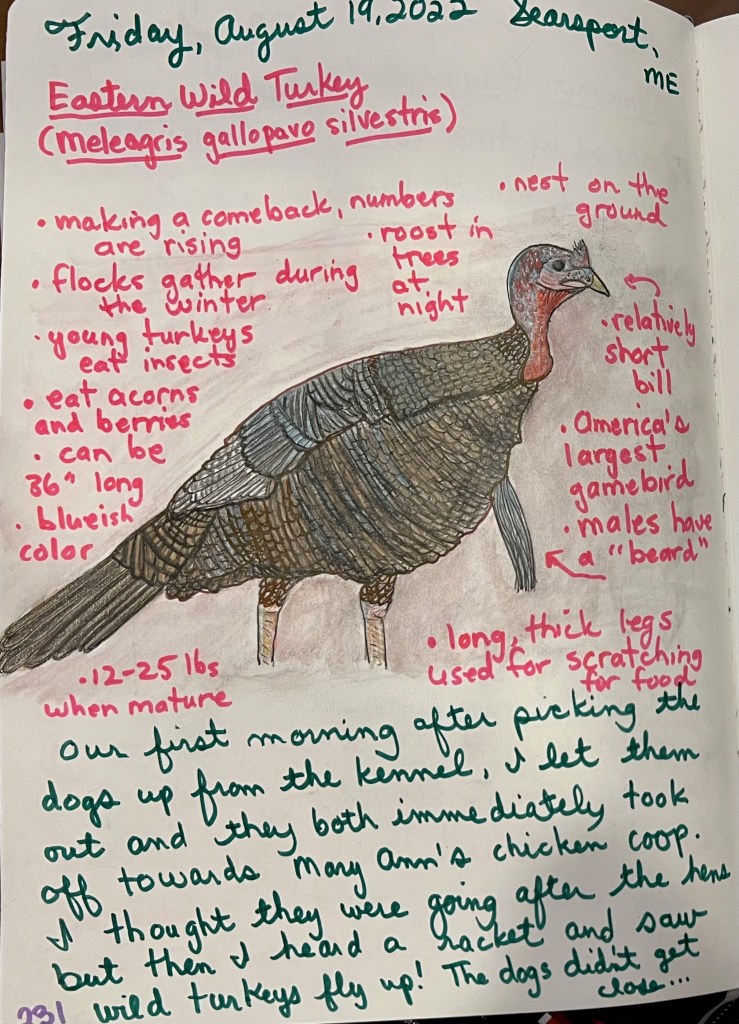 Friday, August 19, 2022 Searsport,
ME
Eastern Wild Turkey
(Meleagris gallopavo silvestris)
• making a comeback, numbers
are rising
• flocks gather during
the winter
• young turkeys
eat insects
• eat acorns
and berries
• can be
36" long
• blueish
color
• roost in
trees
at
night
• nest on the
ground
• relatively
short
bill
• America's
largest
gamebird
• males have
a "beard"
• 12-25 lbs
when mature
• long, thick legs
used for scratching
for food
Our first morning after picking the
dogs up from the kennel, I let them
out and they both immediately took
off towards Mary Ann's chicken coop.
I thought they were going after the hens
but then I heard a racket and saw
wild turkeys fly up! The dogs didn't get
close...
231